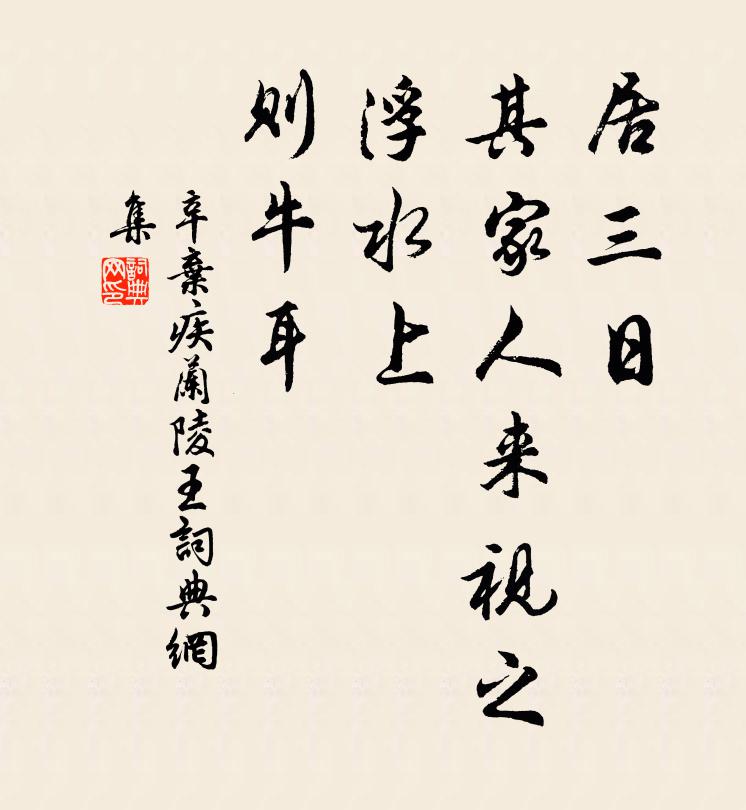 居三日
其家人来视之
浮水上
则牛耳
辛棄疾蘭陵王詞典網
集
詞典
网印